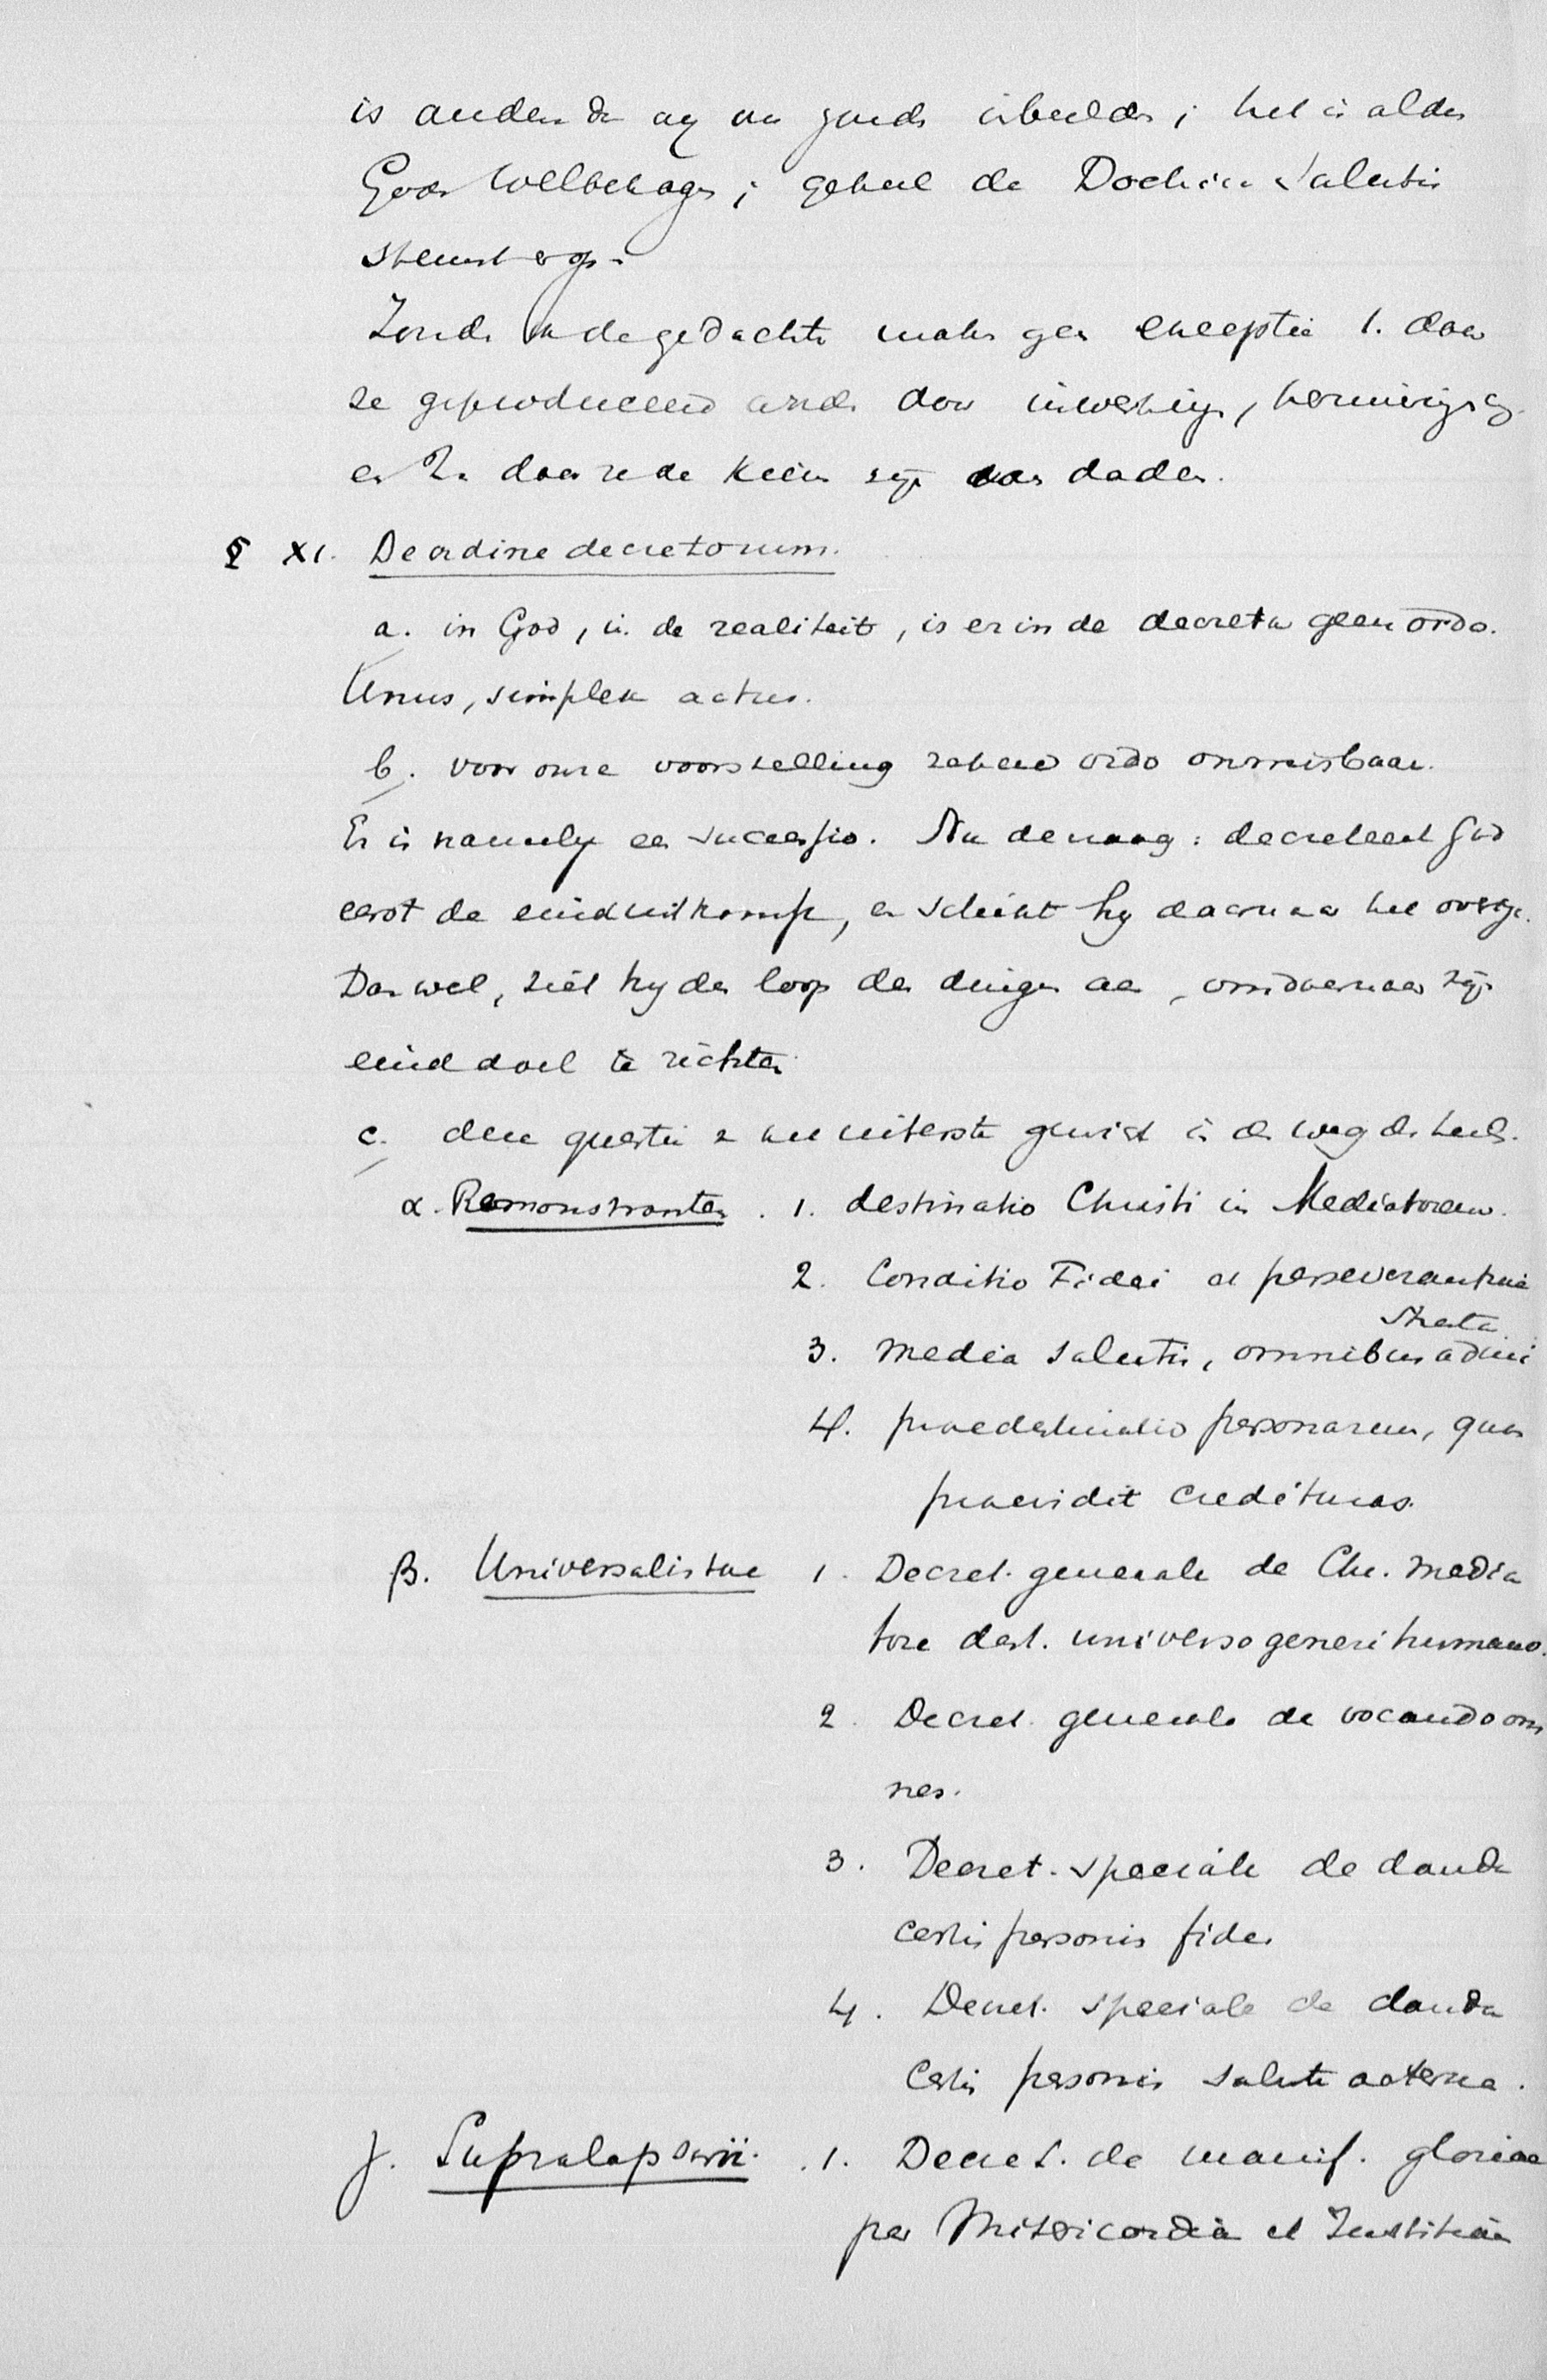 is anders de
Gods Welbehagen; geheel de Doctrina Salutis
steunt erop.
Zonde in de gedachte maken geen exceptie 1. daar
ze geproduceerd door inwerking,
en 2. daar ze de kiem zijn van daden.
§ XI. De ordine decretorum.
a. in God, in de realiteit, is er in de decreta geen ordo.
Unus, simplex actus.
b. voor onze voorstelling zekere ordo onmisbaar.
Er is namelijk een successio. Nu de vraag: decreteert God
eerst de einduitkomst, en schikt hij daarna het overige.
Dan wel, ziet hij den loop der dingen aan, om daarnaar zijn
einddoel te richten
c. deze questie v. het uiterste gewicht in den weg des heils.
α. Remonstranten. 1. destinatio Christi in Mediatorem.
2. Conditio Fidei et perseverantiae
3. media salutis, omnibus admini
strata.
4. praedestinatio personarum, quas
praevidit credituras.
β. Universalistae 1. Decret. generale de Chr. media
tore dest. universo generi humano.
2. Decret. generale de vocando om
nes.
3. Decret. speciale de danda
certis personis fide.
4. Decret. speciale de danda
certis personis salute aeterna.
γ. Supralapsarii. 1. Decret. de manif. gloriae
per Misericordia et Justitiam